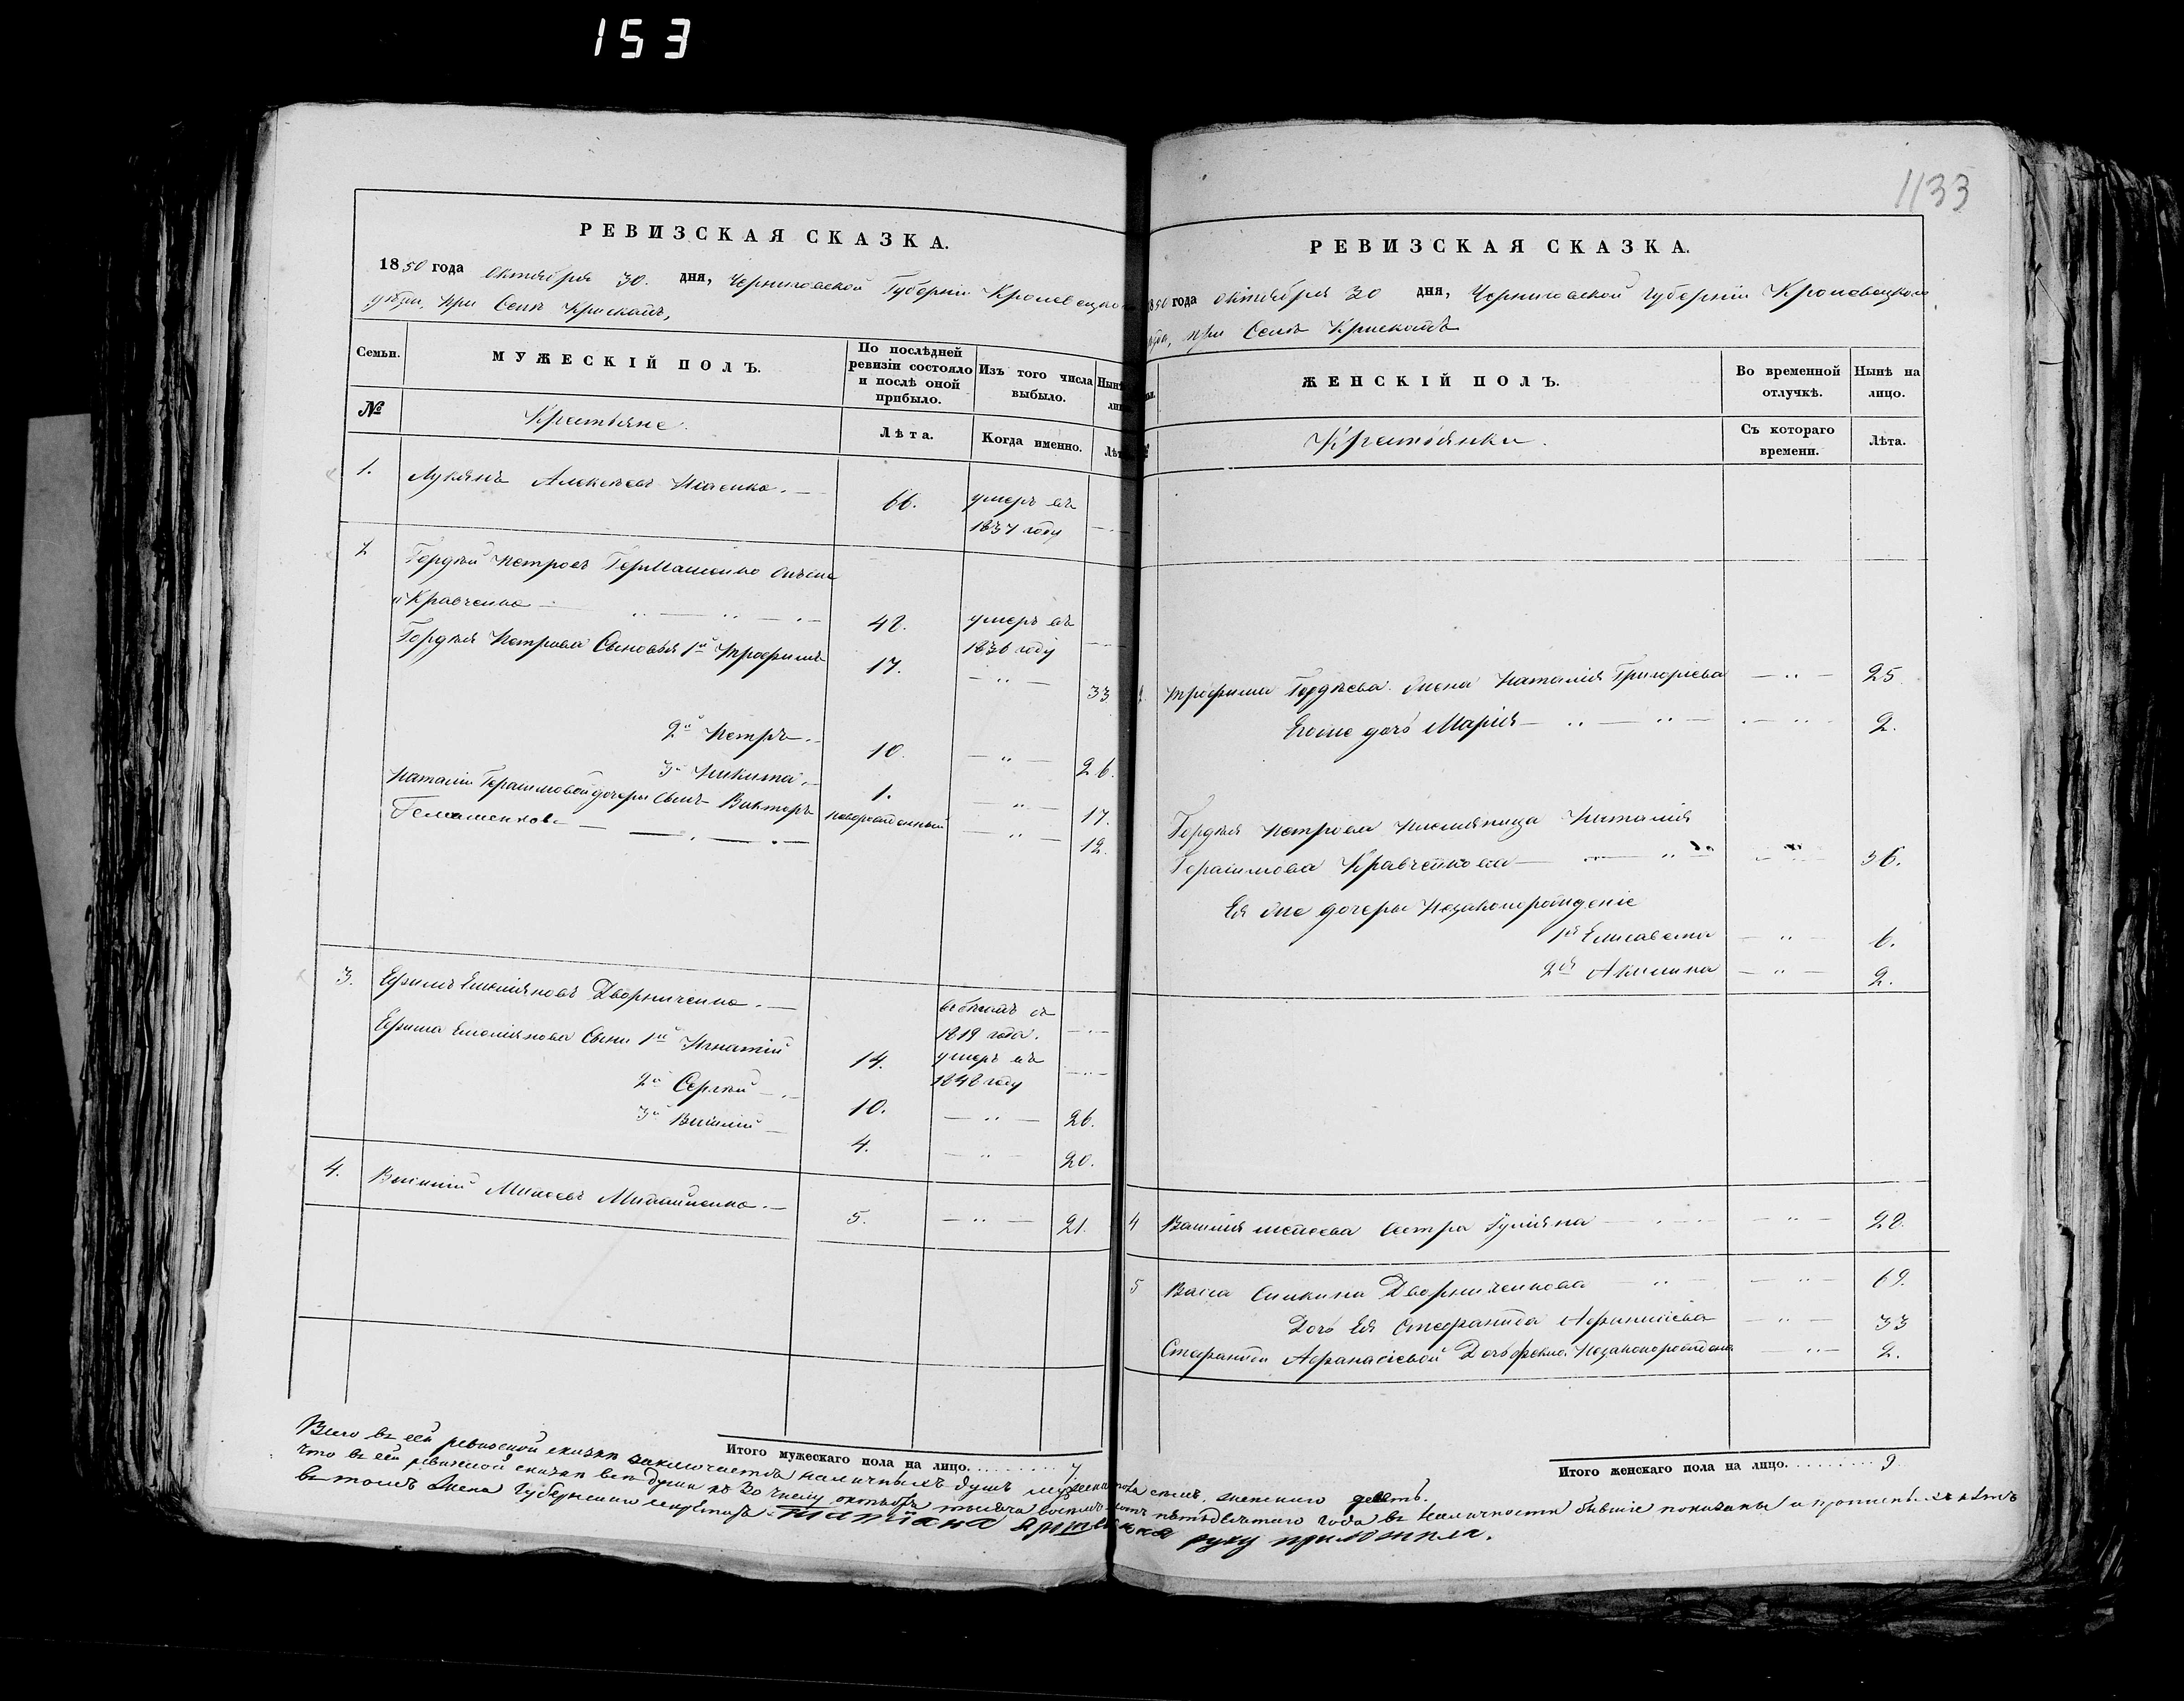 153
1133
РЕВИЗСКАЯ СКАЗКА.
1850 года Октября 30. дня, Черниговской Губерніи Кролевецкого
уѣзда, при Селѣ Крискахъ,
Семьи. МУЖЕСКІЙ ПОЛЪ. По послѣдней ревизіи состояло и послѣ оной прибыло. Изъ того числа выбыло. Нынѣ
№ Крестьяне. Лѣта. Когда именно.
1. Лукьянъ Алексѣевъ 66. умеръ въ
1837 году
2 Гордѣй Петровъ Гермашенко онъ же
и Кравченко 48. умеръ въ
1836 году
Гордѣя Петрова Сыновья 1й Трофимъ 17. — " — 33
2й Петръ. 10. — " — 26.
3й Никита. 1. — " — 17.
Наталіи Герасимовой дочери Сынъ Викторъ новорожденный — " — 12.
3. Ефимъ Емельяновъ Дворниченко. въ бѣгахъ съ
1819 года.
Ефима Емельянова Сыны 1й Игнатій 14. умеръ въ
1848 году
2й Сергѣй 10. — " — 26.
3й Василій 4. — " — 20.
4. Василій 5. — " — 21.
Итого мужескаго пола на лицо. 7
РЕВИЗСКАЯ СКАЗКА.
1850 года Октября 30 дня, Черниговской Губерніи Кролевецкого
уѣзда, при Селѣ Крискахъ
ЖЕНСКІЙ ПОЛЪ. Во временной отлучкѣ. Нынѣ на лицо.
Крестьянки. Съ котораго времени. Лѣта.
Трофима Гордѣева жена Наталія Григорьева — " — 25.
Его же дочь Марія — " — 2.
Гордѣя Петрова племянница Наталія
Герасимова Кравченкова 36.
Ея же дочери незаконорожденіе
1я Елисавета — " — 6.
2я Акилина — " — 2.
4 Василія сестра Ульяна — " — 28.
5 Васса Дворниченкова — " — 69.
Дочь Ея Стефанида Афанасіева — " — 33
Стефаниды Афанасіевой Дочь незаконорожденна — " — 2.
Итого женскаго пола на лицо. 9
Всего въ сей ревизской сказкѣ заключается наличныхъ душъ мужеска пола семь, женского девять.
что въ сей ревизской сказкѣ всѣ души къ 30 числу октября тысяча восемьсотъ пятьдесятаго года въ наличности бывшіе показаны и прописныхъ нѣтъ
въ томъ жена Губернскаго секретаря Татіана руку приложила.